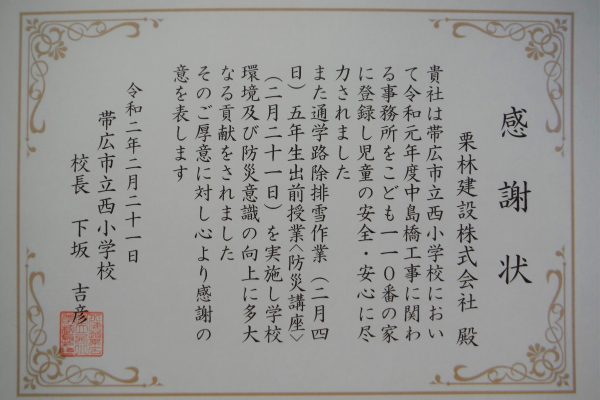 感謝状
栗林建設株式会社 殿
貴社は帯広市立西小学校におい
て令和元年度中島橋工事に関わ
る事務所をこども一一〇番の家
に登録し児童の安全・安心に尽
力されました
また通学路除排雪作業（二月四
日）五年生出前授業〈防災講座〉
（二月二十一日）を実施し学校
環境及び防災意識の向上に多大
なる貢献をされました
そのご厚意に対し心より感謝の
意を表します
令和二年二月二十一日
帯広市立西小学校
校長 下坂 吉彦